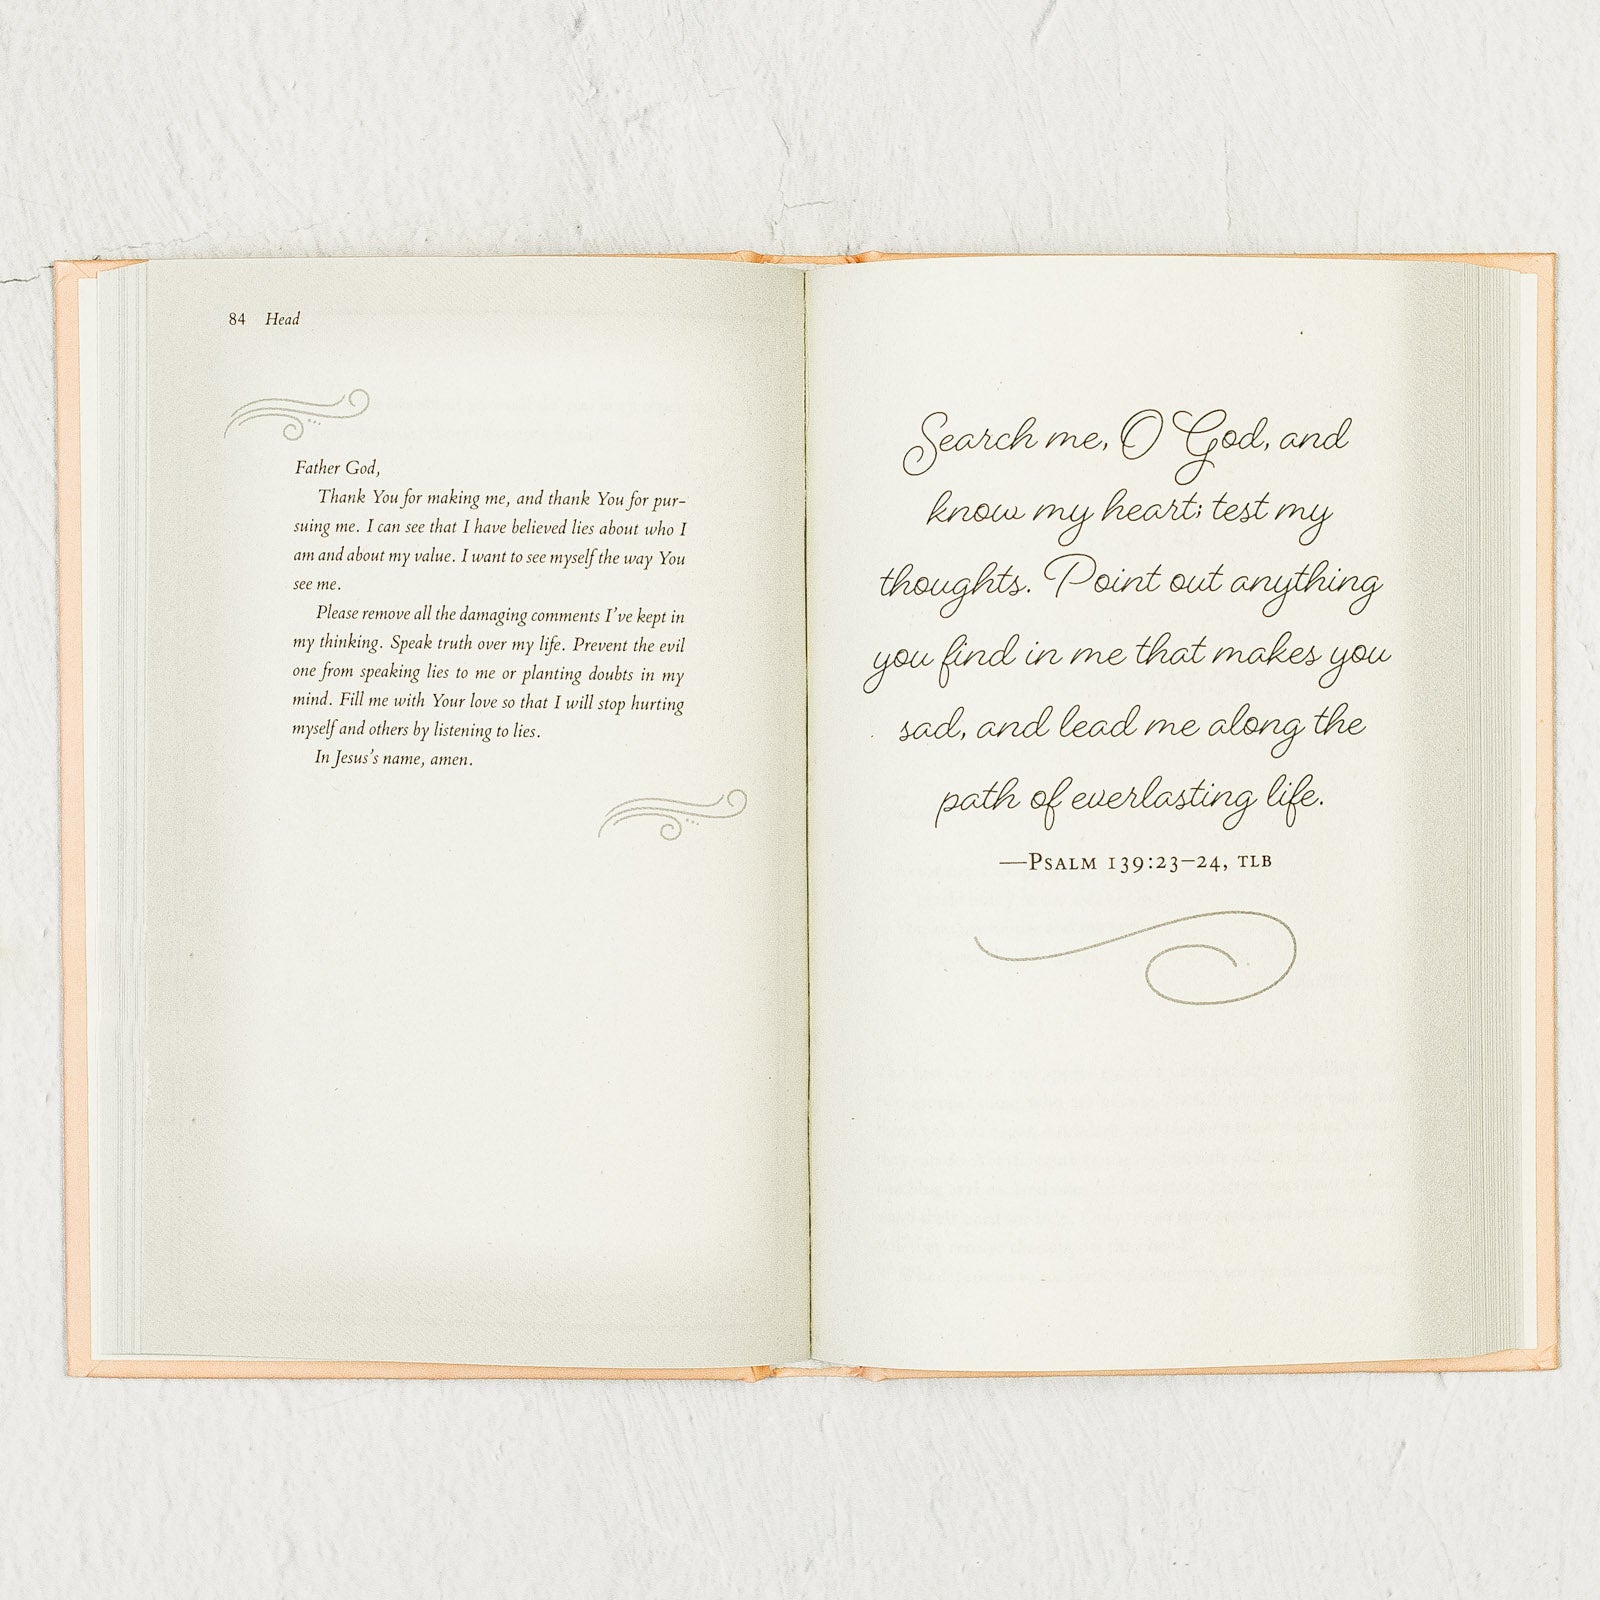 84 Head
Father God,
Thank You for making me, and thank You for pur-
suing me. I can see that I have believed lies about who I
am and about my value. I want to see myself the way You
see me.
Please remove all the damaging comments I've kept in
my thinking. Speak truth over my life. Prevent the evil
one from speaking lies to me or planting doubts in my
mind. Fill me with Your love so that I will stop hurting
myself and others by listening to lies.
In Jesus's name, amen.
Search me, O God, and
know my heart; test my
thoughts. Point out anything
you find in me that makes you
sad, and lead me along the
path of everlasting life.
—PSALM 139:23–24, TLB